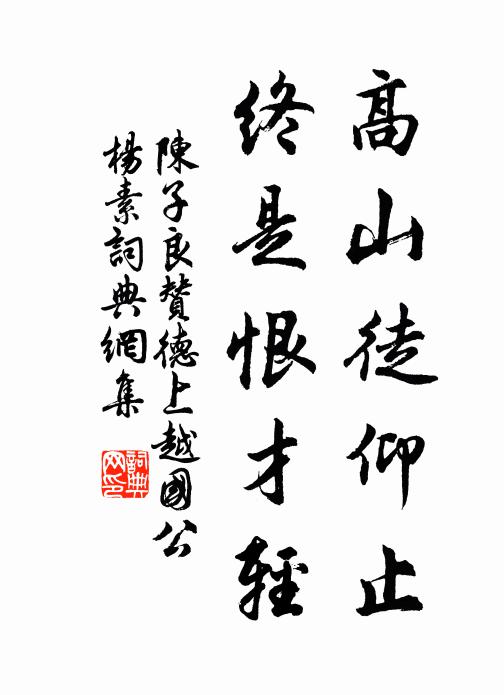 高山徒仰止
終是恨才輕
陳子良贊德上越國公
楊素詞典網集
詞典網印